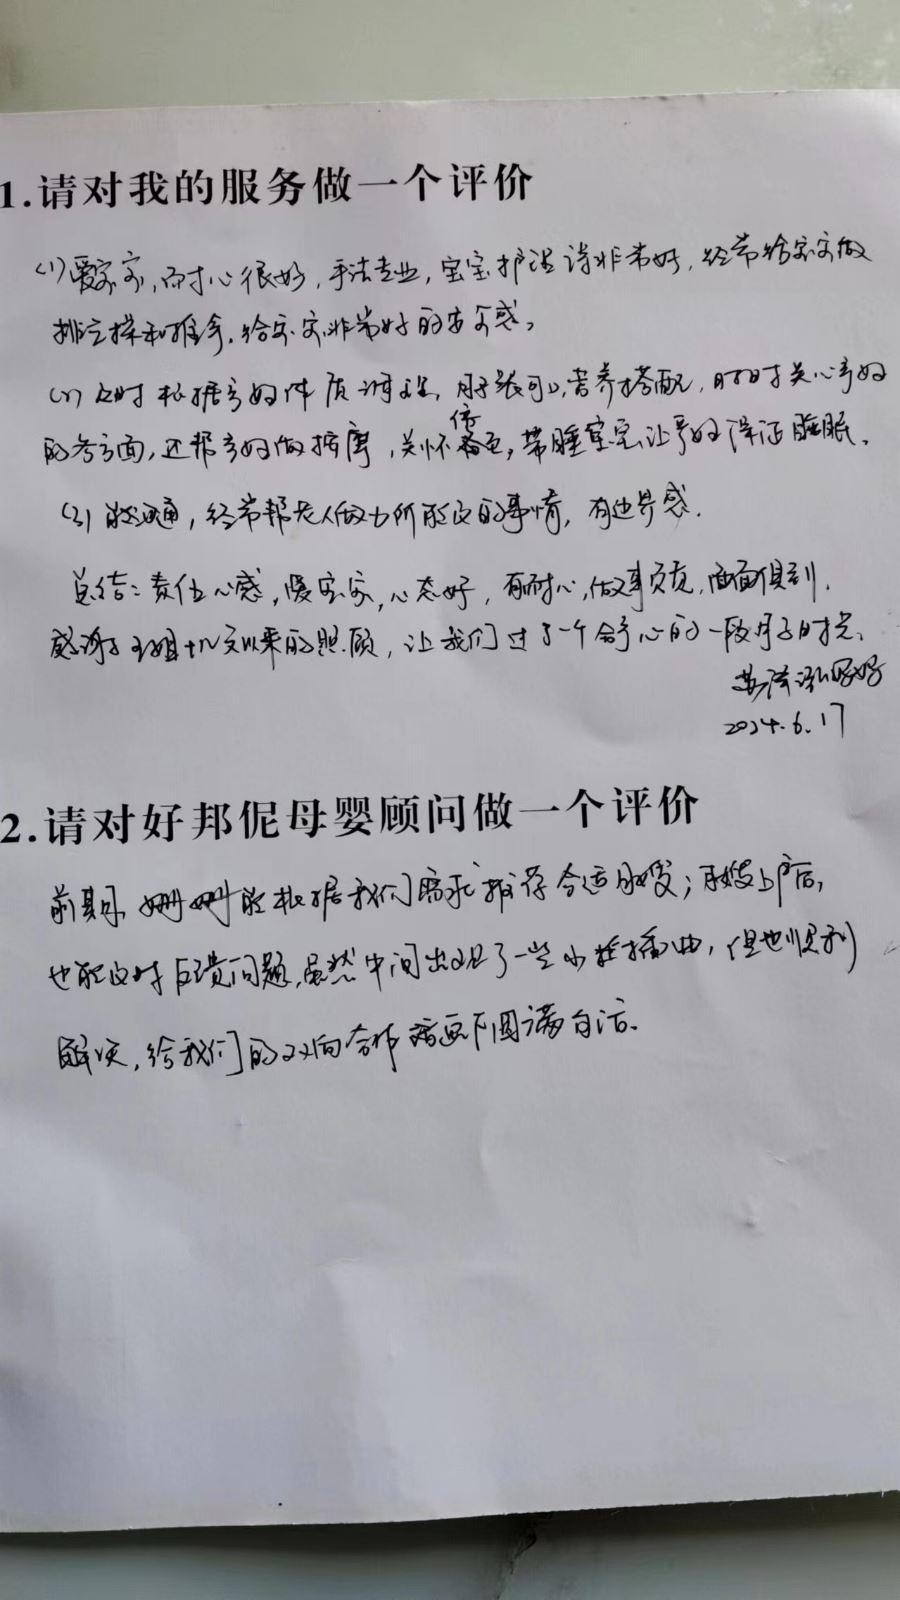 1.请对我的服务做一个评价
(1)爱宝宝,耐心很好,手法专业,宝宝护理得非常好,经常给宝宝做
排气操和推拿,给宝宝非常好的安全感。
(2)及时根据产妇体质调理,月子餐可口,营养搭配,时时关心产妇
的各方面,还帮产妇做按摩,关怀倍,带睡宝宝让产妇保证睡眠。
(3)能沟通,经常帮老人做力所能及的事情,有边界感.
总结:责任心感,爱宝宝,心态好,有耐心,做事负责,面面俱到.
感谢王姐以来的照顾,让我们过了一个舒心的一段月子时光。
妈妈
2024.6.17
2.请对好邦伲母婴顾问做一个评价
前期,姗姗能根据我们需求推荐合适月嫂;月嫂上户后,
也能及时反馈问题,虽然中间出现了一些小插曲,但也顺利
解决,给我们的双向合作画下圆满句话.